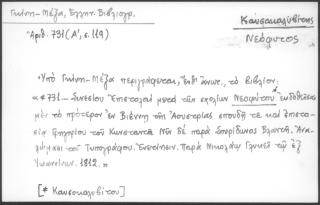 Γκίνη - Μέξα, Ελλην. Βιβλιογρ.
Καυσοκαλυβίτης
Νεόφυτος
Ἀριθ. 731 (Α', σ. 119)
Ὑπὸ Γκίνη - Μέξα περιγράφεται, τὸ βιβλίον:
«*731 – Συνεσίου Ἐπιστολαὶ μετὰ τῶν σχολίων Νεοφύτου* ἐκδοθεῖσαι
μὲν τὸ πρότερον ἐν Βιέννῃ τῆς Αουστρίας σπουδῇ τε καὶ ἐπιστα-
σίᾳ Γρηγορίου τοῦ Κωνσταντᾶ Νῦν δὲ παρὰ Σπυρίδωνος Βλαντῆ.
Τυπογράφου. Ἐνετίησιν. Παρὰ Νικολάῳ Γλυκεῖ τῷ ἐξ
Ἰωαννίνων. 1812.»
[* Καυσοκαλυβίτου]